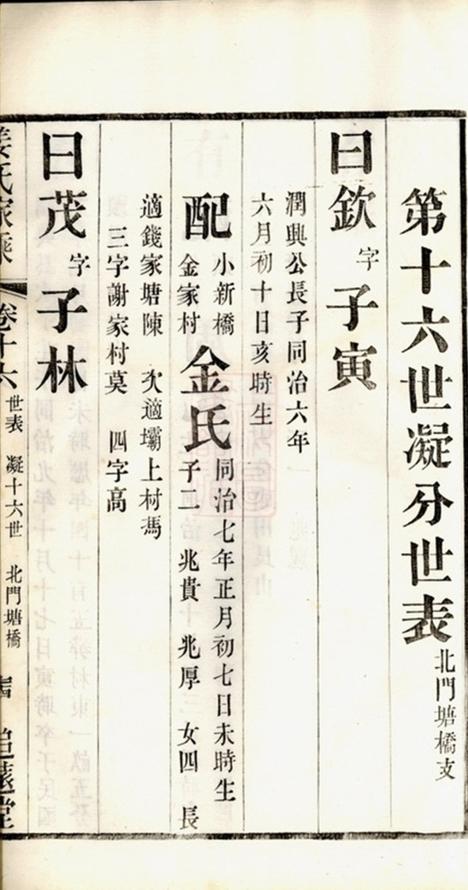 第十六世凝分世表北門塘橋支
曰欽字子寅
潤興公長子同治六年
六月初十日亥時生
配小新橋金家村金氏同治七年正月初七日未時生
子二 兆貴 兆厚 女四 長
適錢家塘陳 次適壩上村馮
三字謝家村莫 四字高
曰茂字子林
姜氏家乘 卷十六 世表 凝十六世 北門塘橋